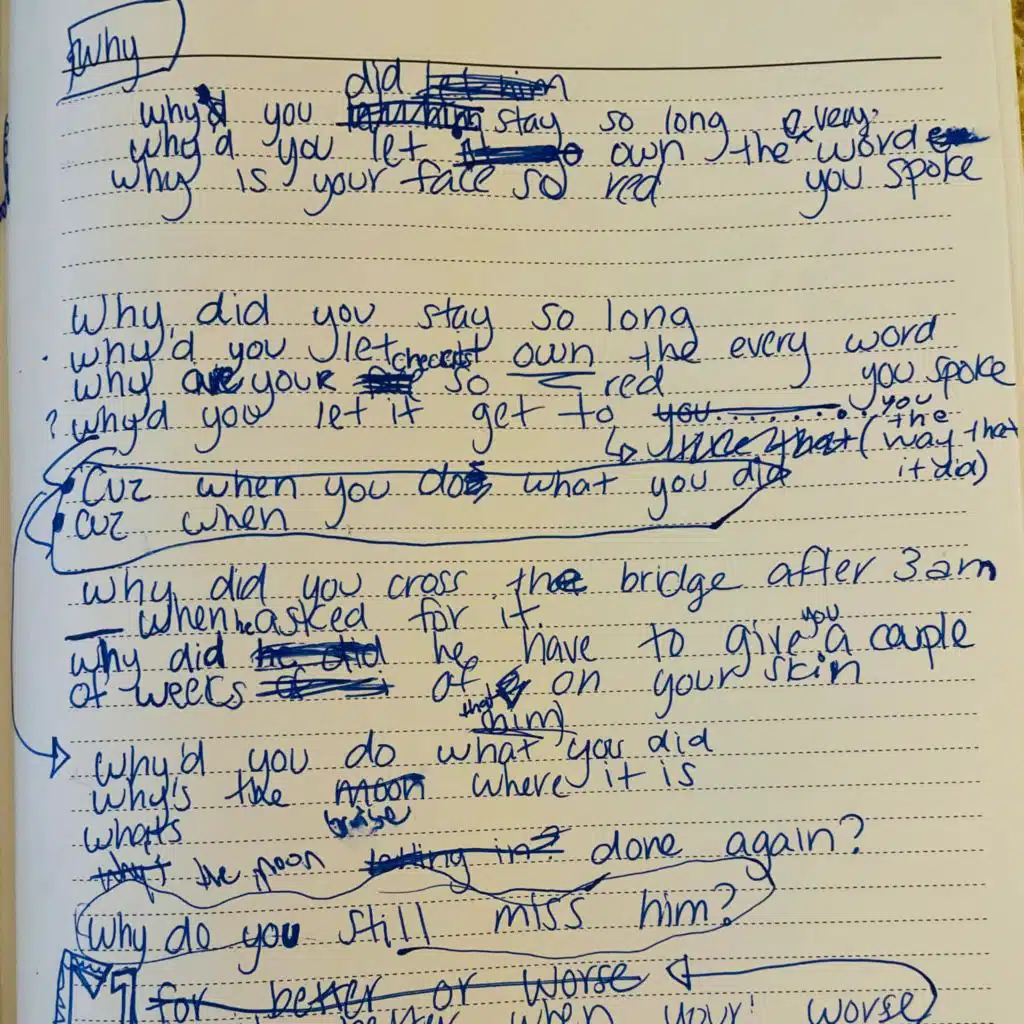 Why
did let him
why'd you stay so long every
why'd you let own the word
why is your face so red you spoke
Why did you stay so long
why'd you let own the every word
checks
why are your so red you spoke
? why'd you let it get to you........ you
like that (the way that it did)
Cuz when you do what you did
cuz when
why did you cross the bridge after 3am
when he asked for it.
you
why did he did he have to give a couple
of weeks of on your skin
that
him)
why'd you do what you did
why's the moon where it is
what's bruise
why't the moon letting in? done again?
why do you still miss him?
for better or worse
when your worse